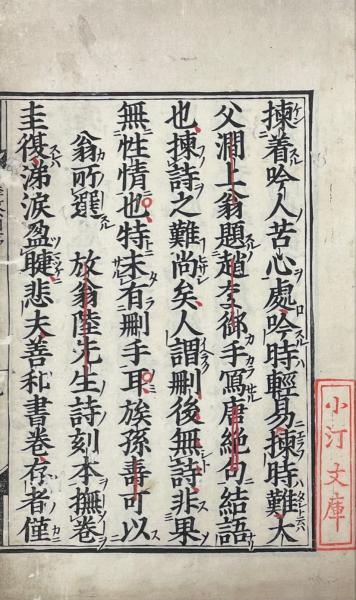 揀着吟人苦心處吟時輕易揀時難大
父澗上翁題趙玄御手寫唐絶句結語
也揀詩之難尚矣人謂刪後無詩非果
無性情也特未有刪手耳族孫壽可以
翁所選　放翁陸先生詩刻本撫卷
圭復涕淚盈睫悲夫善和書卷存者僅
小汀文庫